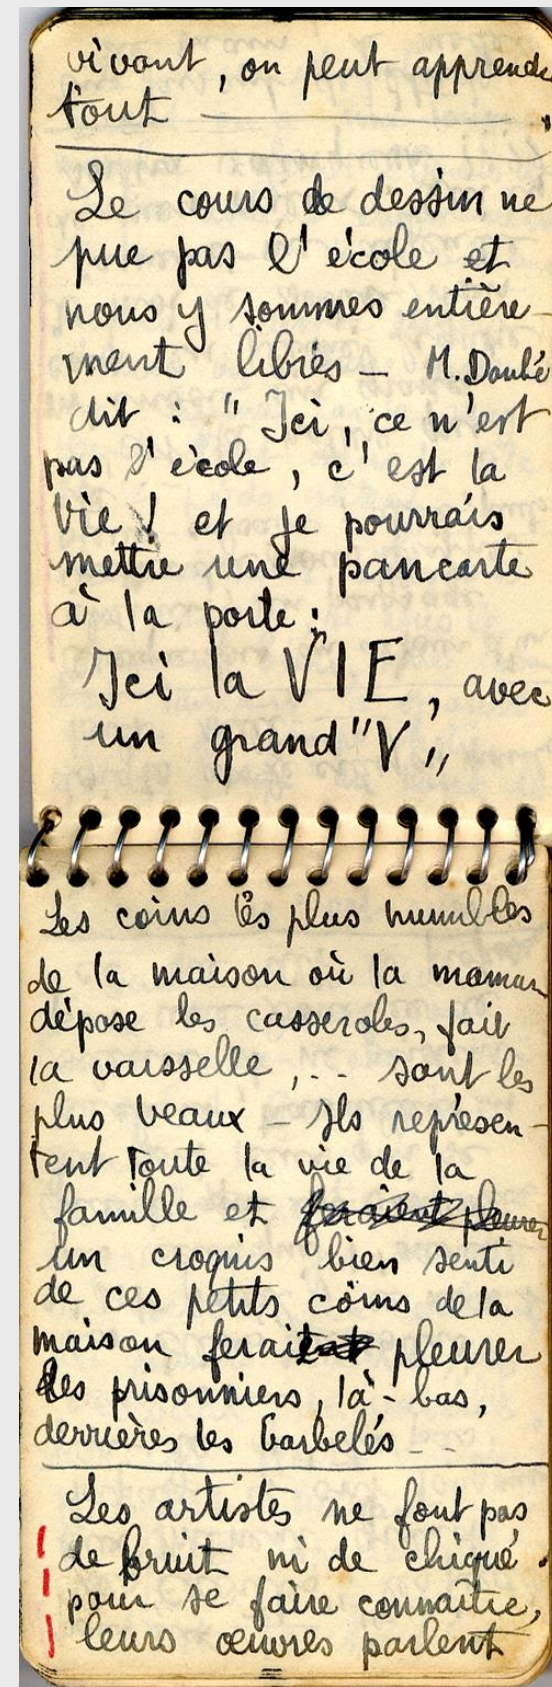 vivant, on peut apprendre
tout
Le cours de dessin ne
pue pas l'école et
nous y sommes entière-
ment libres – M. Daubé
dit : " Ici, ce n'est
pas l'école, c'est la
vie ! et je pourrais
mettre une pancarte
à la porte :
Ici la VIE, avec
un grand "V"
Les coins les plus humbles
de la maison où la maman
dépose les casseroles, fait
la vaisselle, ... sont les
plus beaux – Ils représen-
tent toute la vie de la
famille et feraient pleurer
un croquis bien senti
de ces petits coins de la
maison ferait pleurer
les prisonniers, là-bas,
derrières les barbelés - -
Les artistes ne font pas
de bruit ni de chiqué
pour se faire connaître,
leurs œuvres parlent